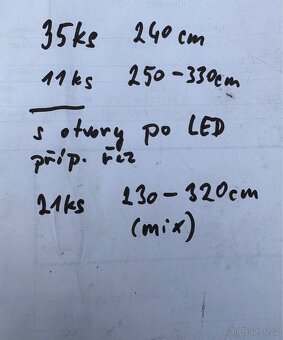 35ks 240cm
11ks 250-330cm
s otvory po LED
příp. řez
21ks 230-320cm
(mix)
© Bazos.cz